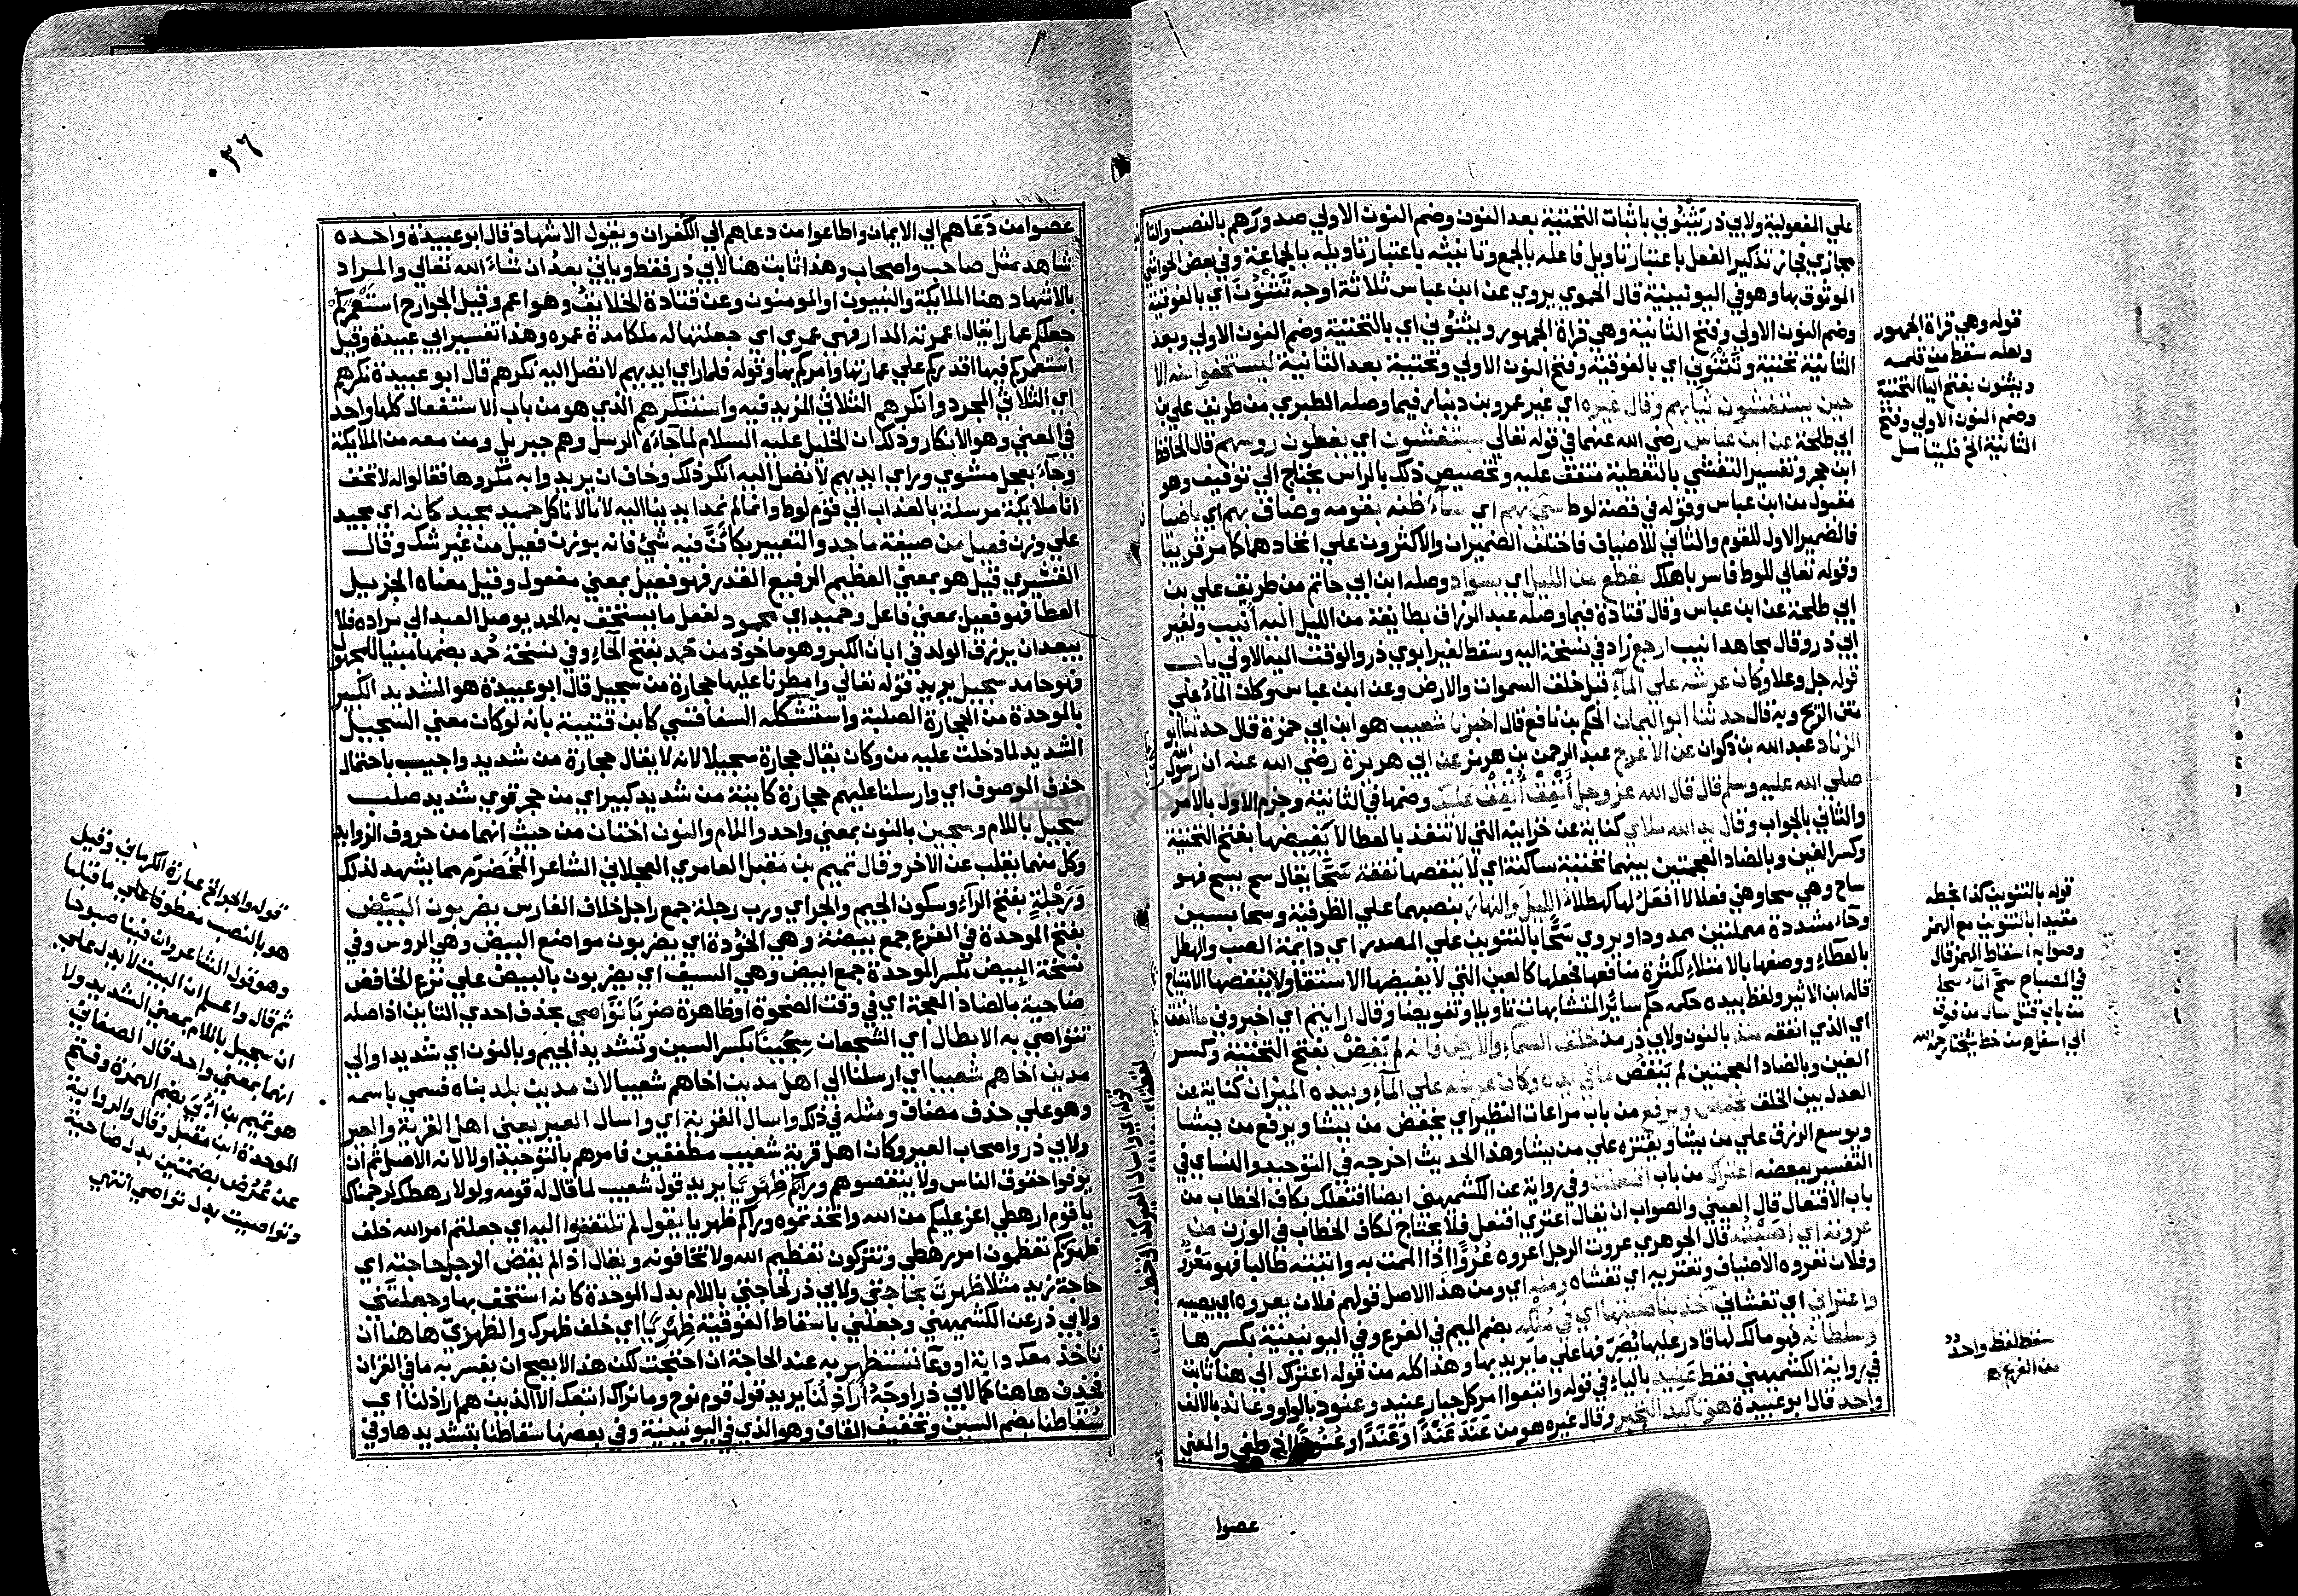 علي المفعولية ولابي ذر يثنوني باثبات التحتية بعد النون وضم النون الاولي صدورهم بالنصب والتا
مجازي فجاز تذكير الفعل باعتبار تاويل فاعله بالجمع وتانيثه باعتبار تاويله بالجماعة وفي بعض الحواشي
الموثوق بها وهو في اليونينية قال الحموي يروي عن ابن عباس ثلاثة اوجه تثنون اي بالفوقية
وضم النون الاولي وفتح الثانية وهي قراة الجمهور ويثنوني اي بالتحتية وضم النون الاولي وبعد
الثانية تحتية وتثنوني اي بالفوقية وفتح النون الاولي وتحتية بعد الثانية ليستخفوا منه الا
حين يستغشون ثيابهم وقال غيره اي غير عمرو بن دينار فيما وصله الطبري من طريق علي بن
ابي طلحة عن ابن عباس رضي الله عنهما في قوله تعالي يستغشون اي يغطون روسهم قال الحافظ
ابن حجر وتفسير التغشي بالتغطية متفق عليه وتخصيص ذلك بالراس يحتاج الي توقيف وهو
مقبول من ابن عباس وقوله في قصة لوط سيئ بهم اي ساء ظنه بقومه وضاق بهم اي باضيا
فالضمير الاول للقوم والثاني للاضياف فاختلف الضميران والاكثرون علي اتحادهما كما مر قريبا
وقوله تعالي للوط فاسر باهلك بقطع من الليل اي بسواد وصله ابن ابي حاتم من طريق علي بن
ابي طلحة عن ابن عباس وقال قتادة فيما وصله عبد الرزاق بطايفة من الليل اليه انيب ولغير
ابي ذر وقال مجاهد انيب ارجع زاد في نسخة اليه وسقط لغير ابوي ذر والوقت اليه الاولي باب
قوله جل وعلا وكان عرشه علي الماء قبل خلق السموات والارض وعن ابن عباس وكان الماء علي
متن الريح وبه قال حدثنا ابو اليمان الحكم بن نافع قال اخبرنا شعيب هو ابن ابي حمزة قال حدثنا ابو
الزناد عبد الله بن ذكوان عن الاعرج عبد الرحمن بن هرمز عن ابي هريرة رضي الله عنه ان رسول الله
صلي الله عليه وسلم قال قال الله عز وجل أنفق أنفق عليك وضمها في الثانية وجزم الاول بالامر
والثاني بالجواب وقال يد الله ملاي كناية عن خزاينه التي لا تنفد بالعطا لا يغيضها بفتح التحتية
وكسر الغين وبالضاد المعجمتين بينهما تحتية ساكنة اي لا ينقصها نفقة سحا يقال سح يسح فهو
ساح وهي سحا وهي فعلا لا افعل لها كهطلا الليل والنهار بنصبهما علي الظرفية وسحا بسين
وحاء مشددة مهملتين ممدودا ويروي سحا بالتنوين علي المصدر اي دايمة الصب والهطل
بالعطاء ووصفها بالامتلاء لكثرة منافعها فجعلها كالعين التي لا يغيضها الاستقا ولا ينقصها الامتياح
قاله ابن الاثير ولفظ بيده حكمه حكم ساير المتشابهات تاويلا وتفويضا وقال ارايتم اي اخبروني ما انفق
اي الذي انفقه منذ بالنون ولابي ذر مذ خلق السماء والارض فانه لم يغض بفتح التحتية وكسر
الغين وبالضاد المعجمتين لم ينقص ما في يده وكان عرشه علي الماء وبيده الميزان كناية عن
العدل بين الخلق يخفض ويرفع من باب مراعات النظير اي يخفض من يشا ويرفع من يشا
ويوسع الرزق علي من يشا ويقتره علي من يشا وهذا الحديث اخرجه في التوحيد والنساي في
التفسير ببعضه اعتراك من باب افتعلت وفي رواية عن الكشميهني ايضا افتعلك بكاف الخطاب من
باب الافتعال قال العيني والصواب ان يقال اعتري افتعل فلا يحتاج لكاف الخطاب في الوزن من
عروته اي اصبته قال الجوهري عروت الرجل اعروه عروا اذا الممت به واتيته طالبا فهو معرو
وفلان تعروه الاضياف وتعتريه اي تغشاه ومنه اي ومن هذا الاصل قولهم فلان يعروه اي يصيبه
واعتراني اي تغشاني آخذ بناصيتها اي في ملكه بضم الميم في الفرع وفي اليونينية بكسرها
وسلطانه فهو مالك لها قادر عليها يصرفها علي ما يريد بها وهذا كله من قوله اعتراك الي هنا ثابت
في رواية الكشميهني فقط عنيد بالياء في قوله واتبعوا امر كل جبار عنيد وعنود بالواو وعاند بالالف
واحد قال ابو عبيدة هو تاكيد التجبر وقال غيره هو من عند عندا او عندا او عنودا اذا طغي والمعني
عصوا
قوله وهي قراة الجمهور
ولعله سقط من قلمه
ويثنون بفتح اليا التحتية
وضم النون الاولي وفتح
الثانية الخ فليتامل
قوله بالتنوين كذا بخطه
مقيدا بالتنوين مع الهمز
وصوابه اسقاط الهمز قال
في المصباح سح الماء سحا
من باب قتل سال من فوق
الي اسفل ه من خط شيخنا رحمه الله
سقط لفظ واحد
من الفرع ه
٠٣٦
عصوا من دعاهم الي الايمان واطاعوا من دعاهم الي الكفران ويقول الاشهاد قال ابو عبيدة واحده
شاهد مثل صاحب واصحاب وهذا ثابت هنا لابي ذر فقط وياتي بعد ان شاء الله تعالي والمراد
بالاشهاد هنا الملايكة والنبيون او المومنون وعن قتادة الخلايق وهو اعم وقيل الجوارح استعمركم
جعلكم عمارا يقال اعمرته الدار فهي عمري اي جعلتها له ملكا مدة عمره وهذا تفسير ابي عبيدة وقيل
استعمركم فيها اقدركم علي عمارتها وامركم بها وقوله فلما راي ايديهم لا تصل اليه نكرهم قال ابو عبيدة نكرهم
اي الثلاثي المجرد وانكرهم الثلاثي المزيد فيه واستنكرهم الذي هو من باب الاستفعال كلها واحد
في المعني وهو الانكار وذلك ان الخليل عليه السلام لما جاءه الرسل وهم جبريل ومن معه من الملايكة
وجاء بعجل مشوي وراي ايديهم لا تصل اليه انكر ذلك وخاف ان يريدوا به مكروها فقالوا له لا تخف
انا ملايكة مرسلة بالعذاب الي قوم لوط وانما لم نمد ايدينا اليه لانا لا ناكل حميد مجيد كانه اي مجيد
علي وزن فعيل من صيغة ماجد والتعبير بكان فيه شئ فانه بوزن فعيل من غير شك وقال
القشيري قيل هو بمعني العظيم الرفيع القدر فهو فعيل بمعني مفعول وقيل معناه الجزيل
العطا فهو فعيل بمعني فاعل وحميد اي محمود لفعل ما يستحق به الحمد يوصل العبد الي مراده فلا
يبعد ان يرزق الولد في ابان الكبر وهو ماخوذ من حمد بفتح الحاء وفي نسخة حمد بضمها مبنيا للمجهول
فهو حامد سجيل يريد قوله تعالي وامطرنا عليها حجارة من سجيل قال ابو عبيدة هو الشديد الكبير
بالموحدة من الحجارة الصلبة واستشكله السفاقسي كابن قتيبة بانه لو كان معني السجيل
الشديد لما دخلت عليه من وكان يقال حجارة سجيلا لانه لا يقال حجارة من شديد واجيب باحتمال
حذف الموصوف اي وارسلنا عليهم حجارة كاينة من شديد كبير اي من حجر قوي شديد صلب
سجيل باللام وسجين بالنون بمعني واحد واللام والنون اختان من حيث انهما من حروف الزوايد
وكل منهما يقلب عن الاخر وقال تميم بن مقبل العامري العجلاني الشاعر المخضرم مما يشهد لذلك
ورجلة بفتح الراء وسكون الجيم والجر اي ورب رجلة جمع راجل خلاف الفارس يضربون البيض
بفتح الموحدة في الفرع جمع بيضة وهي الخوذة اي يضربون مواضع البيض وهي الروس وفي
نسخة البيض بكسر الموحدة جمع ابيض وهي السيف اي يضربون بالبيض علي نزع الخافض
ضاحية بالضاد المعجمة اي في وقت الضحوة او ظاهرة ضربا تواصي بحذف احدي التاين اذ اصله
تتواصي به الابطال اي الشجعان سجينا بكسر السين وتشديد الجيم وبالنون اي شديدا والي
مدين اخاهم شعيبا اي ارسلنا الي اهل مدين اخاهم شعيبا لان مدين بلد بناه فسمي باسمه
وهو علي حذف مضاف ومثله في ذلك واسال القرية اي واسال العير يعني اهل القرية والعير
ولابي ذر واصحاب العير وكان اهل قرية شعيب مطففين فامرهم بالتوحيد اولا لانه الاصل ثم ان
يوفوا حقوق الناس ولا ينقصوهم وراكم ظهريا يريد قول شعيب لما قال له قومه ولولا رهطك لرجمناك
يا قوم ارهطي اعز عليكم من الله واتخذتموه وراكم ظهريا يقول لم تلتفتوا اليه اي جعلتم امر الله خلف
ظهوركم تعظمون امر رهطي وتتركون تعظيم الله ولا تخافونه ويقال اذا لم يقض الرجل حاجته اي
حاجة زيد مثلا ظهرت بحاجتي ولابي ذر لحاجتي باللام بدل الموحدة كانه استخف بها وجعلتني
ولابي ذر عن الكشميهني وجعلني باسقاط الفوقية ظهريا اي خلف ظهرك والظهري هاهنا ان
تاخذ معك دابة او وعاء تستظهر به عند الحاجة ان احتجت لكن هذا لا يصح ان يفسر به ما في القران
فحذف هاهنا كما لابي ذر اوجه اراذلنا يريد قول قوم نوح وما نراك اتبعك الا الذين هم اراذلنا اي
سقاطنا بضم السين وتخفيف القاف وهو الذي في اليونينية وفي بعضها سقاطنا بتشديدها وفي
قوله والجر الخ عبارة الكرماني وقيل
هو بالنصب معطوفا علي ما قبلها
وهو قول الشاعر وان فينا صبوحا
ثم قال واعلم ان البيت لا يدل علي
ان سجيل باللام بمعني الشديد ولا
انهما بمعني واحد قال الصغاني
هو تميم بن ابي بضم الهمزة وفتح
الموحدة ابن مقبل وقال والرواية
عن عرض بضمتين بدل ضاحية
وتواصت بدل تواصي انتهي